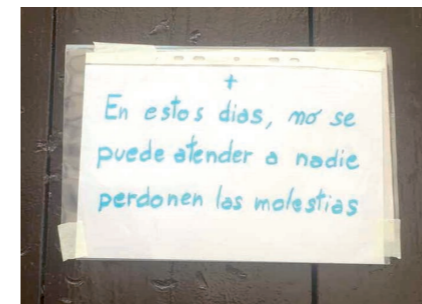 +
En estos dias, no se
puede atender a nadie
perdonen las molestias